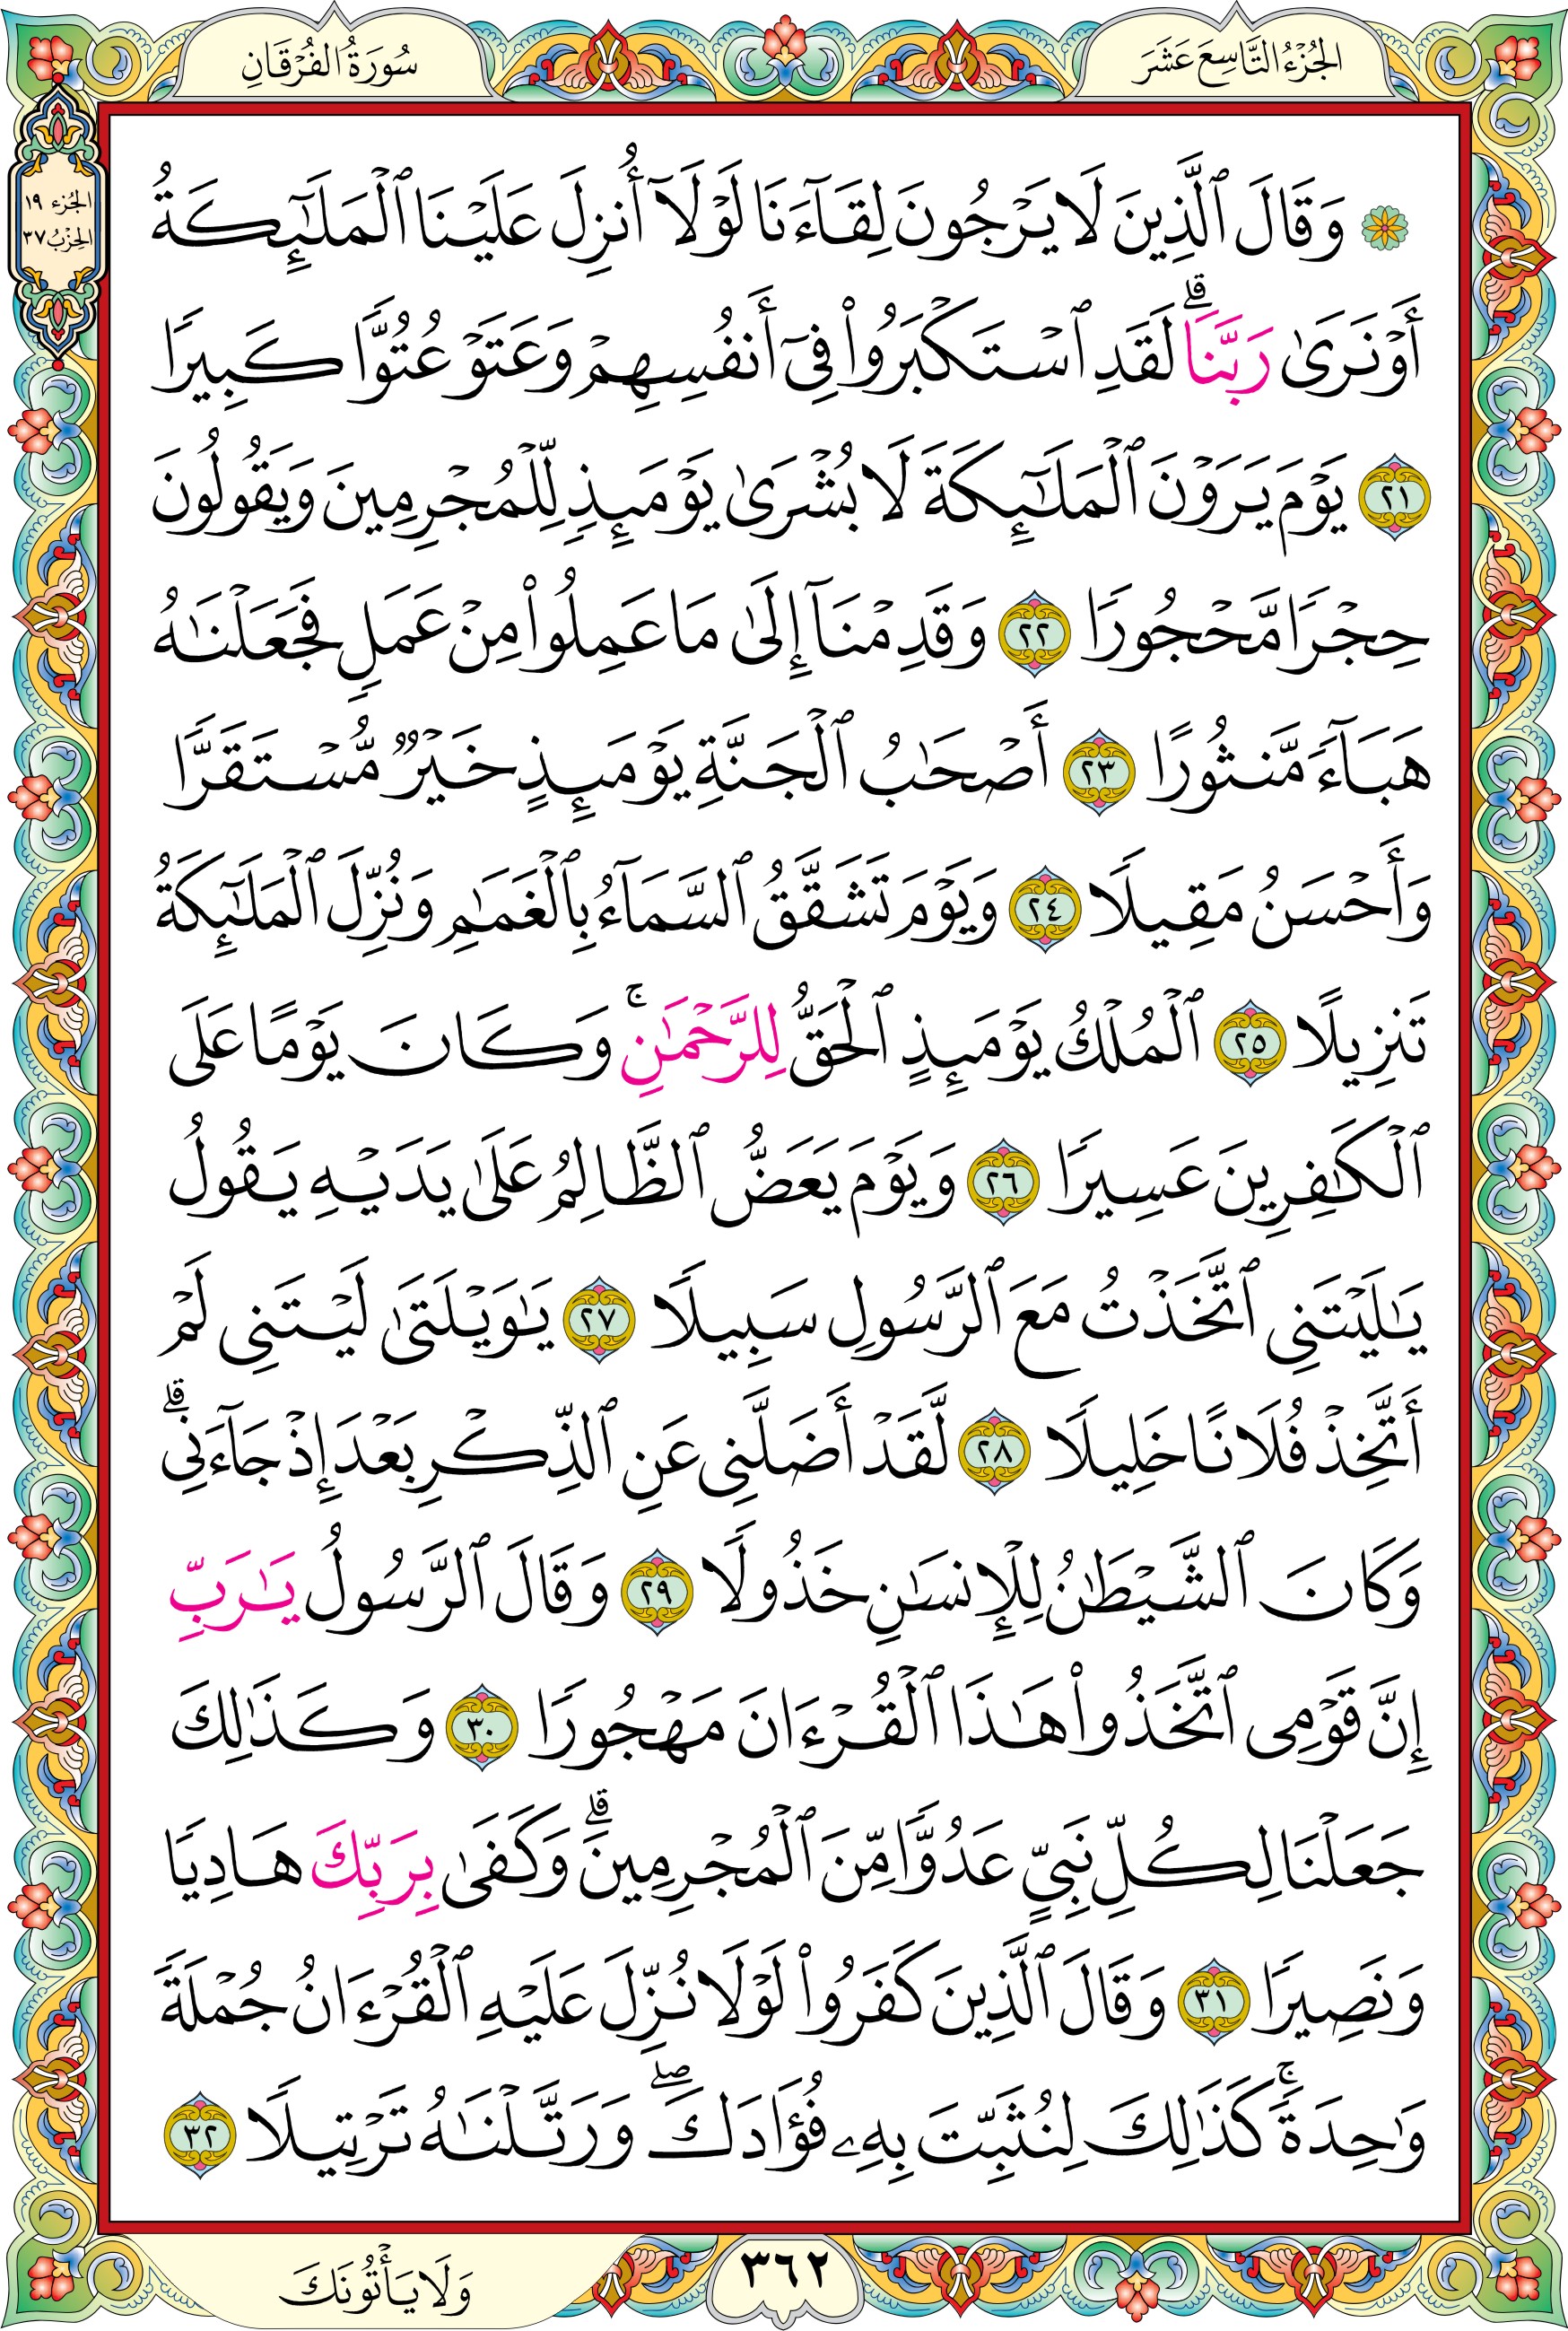 الجزء التاسع عشر
سورة الفرقان
الجزء ١٩
الحزب ٣٧
۞ وَقَالَ ٱلَّذِينَ لَا يَرْجُونَ لِقَآءَنَا لَوْلَآ أُنزِلَ عَلَيْنَا ٱلْمَلَٰٓئِكَةُ
أَوْ نَرَىٰ رَبَّنَا ۗ لَقَدِ ٱسْتَكْبَرُوا۟ فِىٓ أَنفُسِهِمْ وَعَتَوْ عُتُوًّا كَبِيرًا
٢١ يَوْمَ يَرَوْنَ ٱلْمَلَٰٓئِكَةَ لَا بُشْرَىٰ يَوْمَئِذٍ لِّلْمُجْرِمِينَ وَيَقُولُونَ
حِجْرًا مَّحْجُورًا ٢٢ وَقَدِمْنَآ إِلَىٰ مَا عَمِلُوا۟ مِنْ عَمَلٍ فَجَعَلْنَٰهُ
هَبَآءً مَّنثُورًا ٢٣ أَصْحَٰبُ ٱلْجَنَّةِ يَوْمَئِذٍ خَيْرٌ مُّسْتَقَرًّا
وَأَحْسَنُ مَقِيلًا ٢٤ وَيَوْمَ تَشَقَّقُ ٱلسَّمَآءُ بِٱلْغَمَٰمِ وَنُزِّلَ ٱلْمَلَٰٓئِكَةُ
تَنزِيلًا ٢٥ ٱلْمُلْكُ يَوْمَئِذٍ ٱلْحَقُّ لِلرَّحْمَٰنِ ۚ وَكَانَ يَوْمًا عَلَى
ٱلْكَٰفِرِينَ عَسِيرًا ٢٦ وَيَوْمَ يَعَضُّ ٱلظَّالِمُ عَلَىٰ يَدَيْهِ يَقُولُ
يَٰلَيْتَنِى ٱتَّخَذْتُ مَعَ ٱلرَّسُولِ سَبِيلًا ٢٧ يَٰوَيْلَتَىٰ لَيْتَنِى لَمْ
أَتَّخِذْ فُلَانًا خَلِيلًا ٢٨ لَّقَدْ أَضَلَّنِى عَنِ ٱلذِّكْرِ بَعْدَ إِذْ جَآءَنِى ۗ
وَكَانَ ٱلشَّيْطَٰنُ لِلْإِنسَٰنِ خَذُولًا ٢٩ وَقَالَ ٱلرَّسُولُ يَٰرَبِّ
إِنَّ قَوْمِى ٱتَّخَذُوا۟ هَٰذَا ٱلْقُرْءَانَ مَهْجُورًا ٣٠ وَكَذَٰلِكَ
جَعَلْنَا لِكُلِّ نَبِىٍّ عَدُوًّا مِّنَ ٱلْمُجْرِمِينَ ۗ وَكَفَىٰ بِرَبِّكَ هَادِيًا
وَنَصِيرًا ٣١ وَقَالَ ٱلَّذِينَ كَفَرُوا۟ لَوْلَا نُزِّلَ عَلَيْهِ ٱلْقُرْءَانُ جُمْلَةً
وَٰحِدَةً ۚ كَذَٰلِكَ لِنُثَبِّتَ بِهِۦ فُؤَادَكَ ۖ وَرَتَّلْنَٰهُ تَرْتِيلًا ٣٢
٣٦٢
وَلَا يَأْتُونَكَ